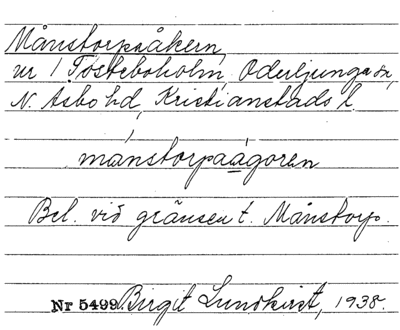 Månstorpaåkern,
nr 1 Tosteboholm, Oderljunga sn,
N. Åsbo hd, Kristianstads l.
månstorpaågoren
Bel. vid gränsen t. Månstorp.
Nr 5499 Birgit Lundkvist, 1938.